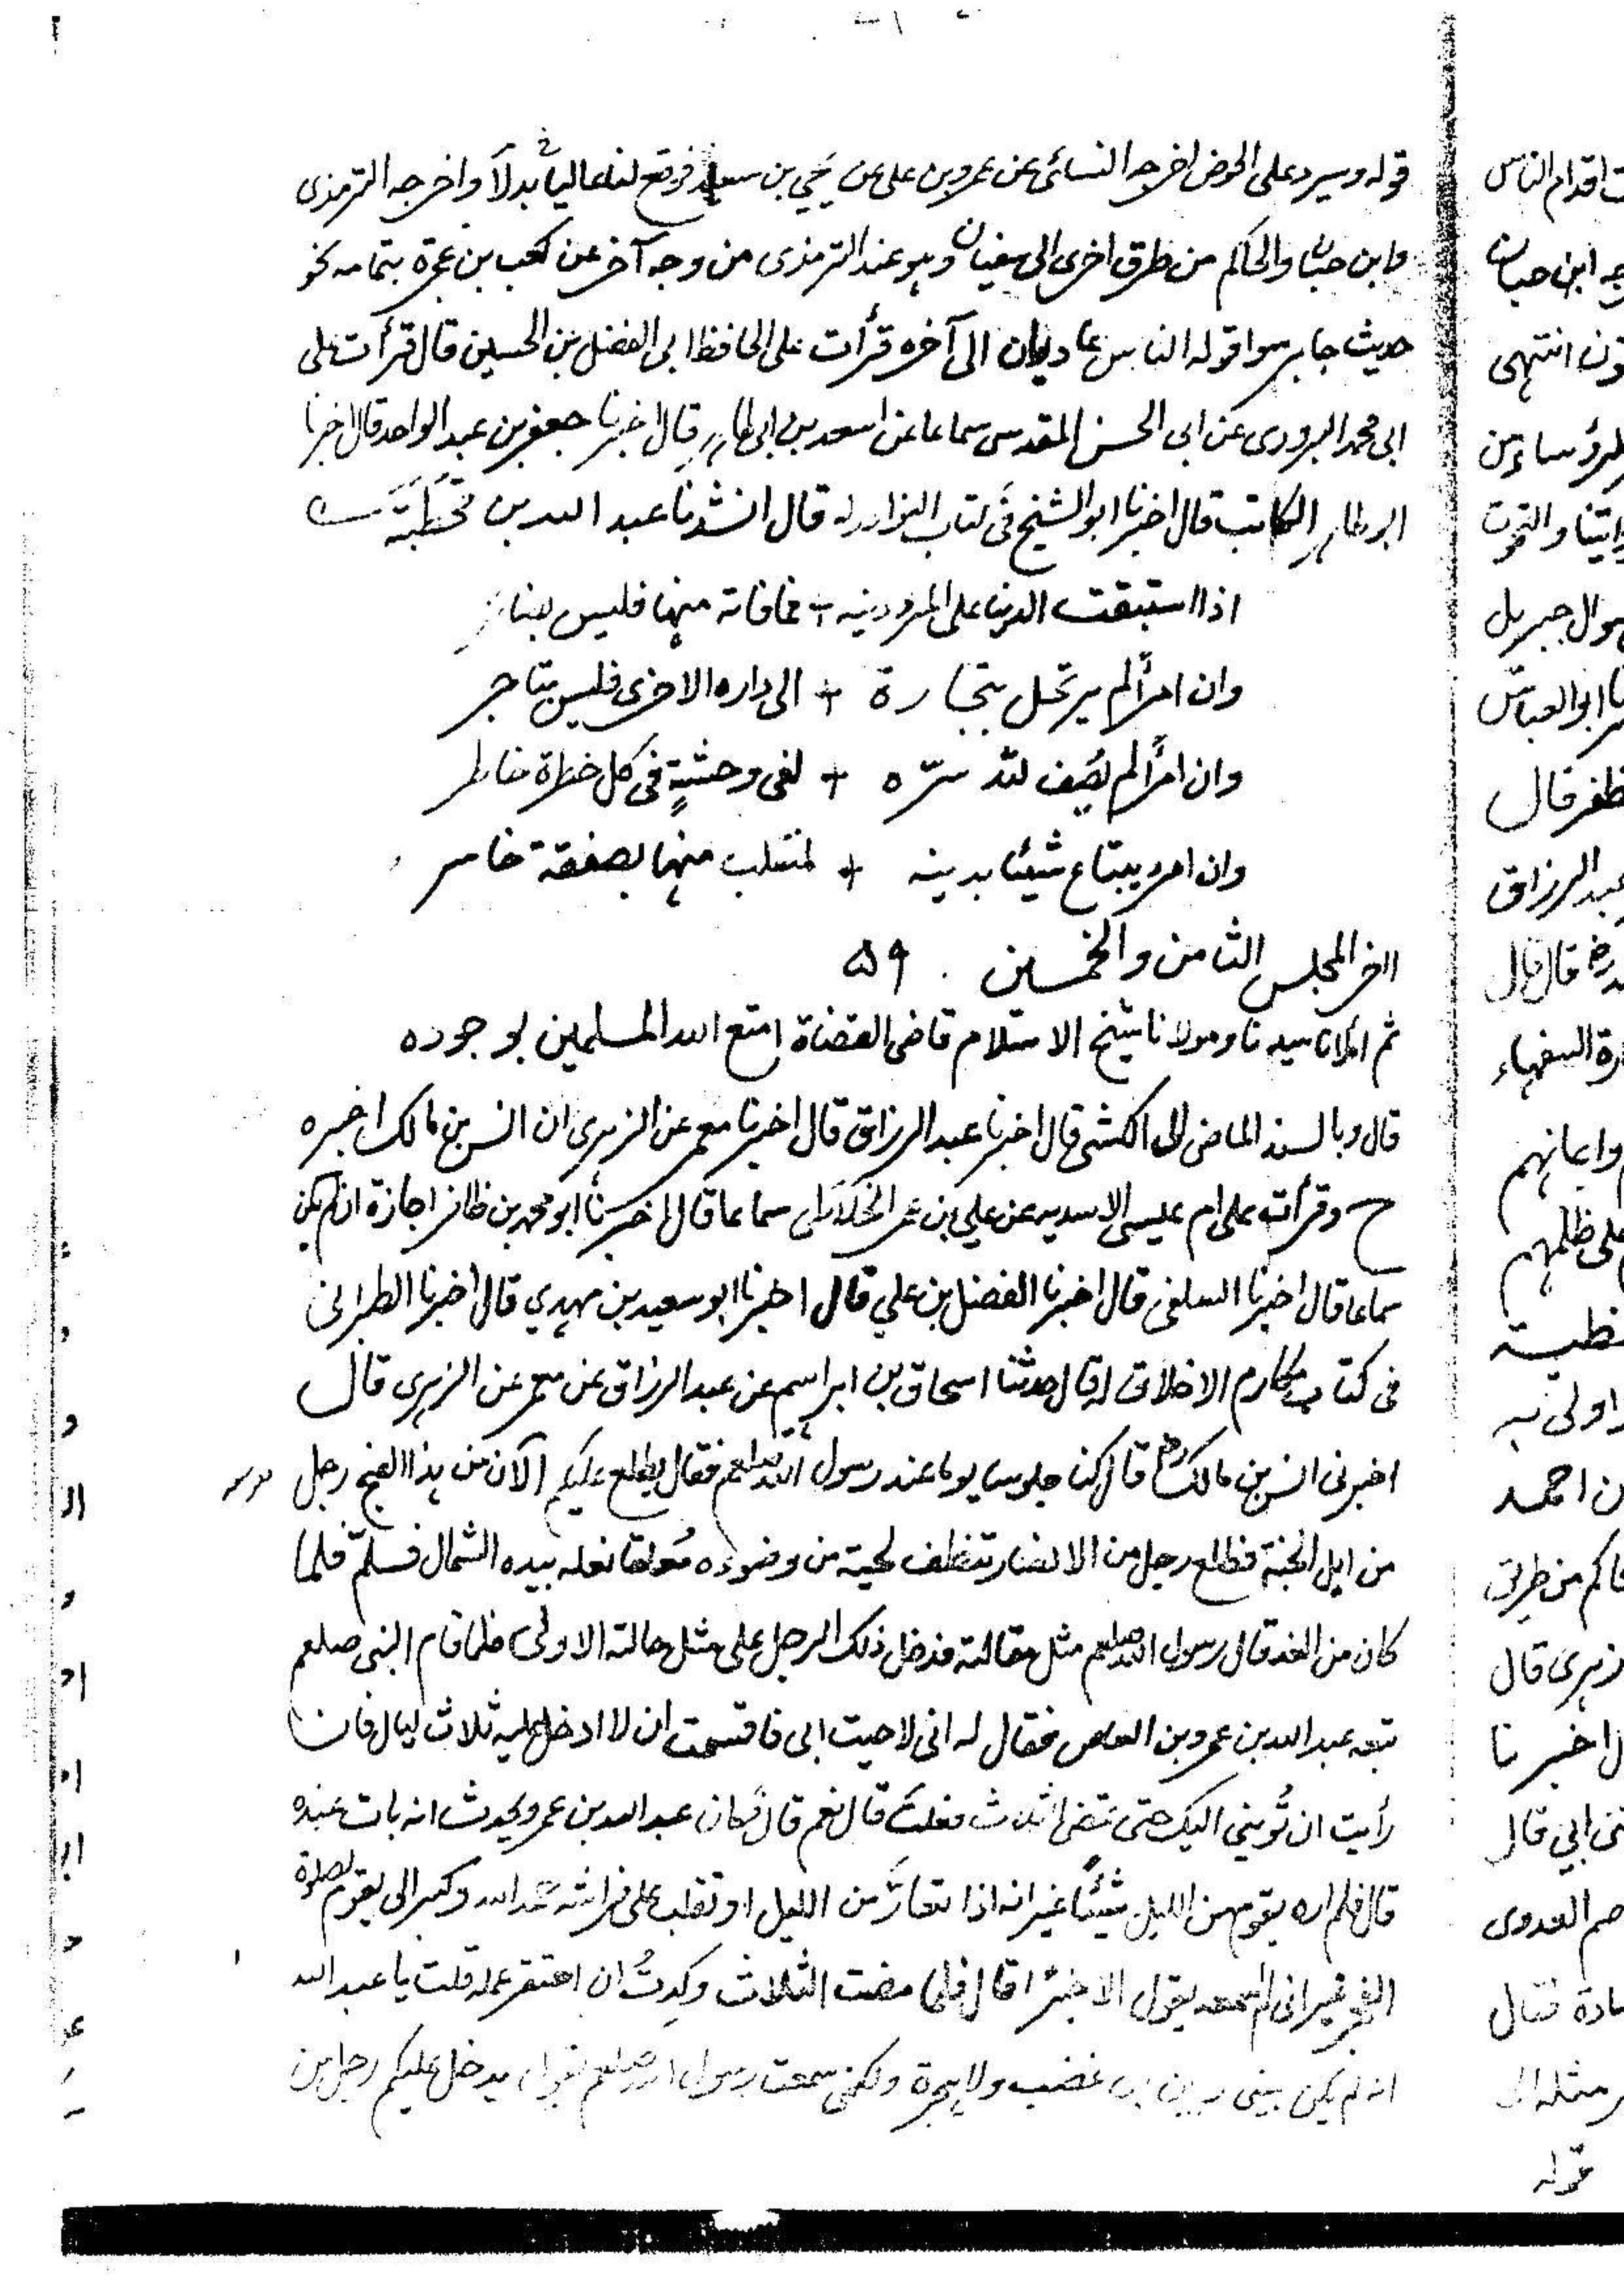 قوله وسيرد على الحوض اخرجه النسائى عن عمرو بن على عن يحيى بن سعيد فوقع لنا عاليا بدلاً واخرجه الترمذى
وابن حبان والحاكم من طرق اخرى الى سفيان وهو عند الترمذى من وجه آخر عن كعب بن عجرة بتمامه نحو
حديث جابر سوا قوله الناس غاديان الى آخره قرأت على الحافظ ابى الفضل بن الحسين قال قرأت على
ابى محمد البزورى عن ابى الحسن المقدسى سماعا عن اسعد بن ابى طاهر قال اخبرنا جعفر بن عبد الواحد قال اخبرنا
ابو طاهر الكاتب قال اخبرنا ابو الشيخ فى كتاب النوادر له قال انشدنا عبد الله بن قحطبة
اذا استبقت الدنيا على المرء دينه + فما فاته منها فليس بضائر
وان امرأ لم يرتحل بتجارة + الى داره الاخرى فليس بتاجر
وان امرأ لم يصف لله سرّه + لفى وحشةٍ فى كل خطرة خاطر
وان امرء يبتاع شيئا بدينه + لمنقلب منها بصفقة خاسر
اخر المجلس الثامن والخمسين . ٥٩
ثم املانا سيدنا ومولانا شيخ الاسلام قاضى القضاة امتع الله المسلمين بوجوده
قال وبالسند الماضى الى الكشى قال اخبرنا عبد الرزاق قال اخبرنا معمر عن الزهرى ان انس بن مالك اخبره
ح وقرأت على ام عيسى الاسديه عن على بن عمر الخلاطى سماعا قال اخبرنا ابو محمد بن ظافر اجازة ان لم يكن
سماعا قال اخبرنا السلفى قال اخبرنا الفضل بن علي قال اخبرنا ابو سعيد بن مهدي قال اخبرنا الطبرانى
فى كتاب مكارم الاخلاق له قال حدثنا اسحاق بن ابراهيم عن عبد الرزاق عن معمر عن الزهرى قال
اخبرنى انس بن مالك رض قال كنا جلوسا يوما عند رسول الله صلعم فقال يطلع عليكم الآن من هذا الفج رجل
من اهل الجنة فطلع رجل من الانصار تنظف لحيته من وضوءه مُعلقا نعله بيده الشمال فسلّم فلما
كان من الغد قال رسول الله صلعم مثل مقالته فدخل ذلك الرجل على مثل حالته الاولى فلما قام النبى صلعم
تبعه عبد الله بن عمرو بن العاص فقال له انى لاحيت ابى فاقسمت ان لا ادخل عليه ثلاث ليال فان
رأيت ان تُويني اليك حتى تمضى الثلاث فعلت قال نعم قال فكان عبد الله بن عمرو يحدث انه بات عنده
قال فلم اره يقوم من الليل شيئاً غير انه اذا تعارّ من الليل او تقلب على فراشه حمد الله وكبر الى يقوم لصلوة
الفجر غير انى لم اسمعه يقول الا خيرا قال فلما مضت الثلاث وكدتُ ان احتقر عمله قلت يا عبد الله
انه لم يكن بينى وبين ابى غضب ولا هجرة ولكنى سمعت رسول الله صلعم يقول يدخل عليكم رجل من
ت اقدام الناس
جه ابن حبان
ون انتهى
رؤساء من
سوال جبريل
نا ابو العباس
ظفر قال
عبد الرزاق
قال قال
ارة السفهاء
وايمانهم
على ظلمهم
اولى به
ن احمد
حاكم من طريق
زهرى قال
ل اخبرنا
نى ابي قال
صم العدوى
ادة فقال
مثله الى
قوله